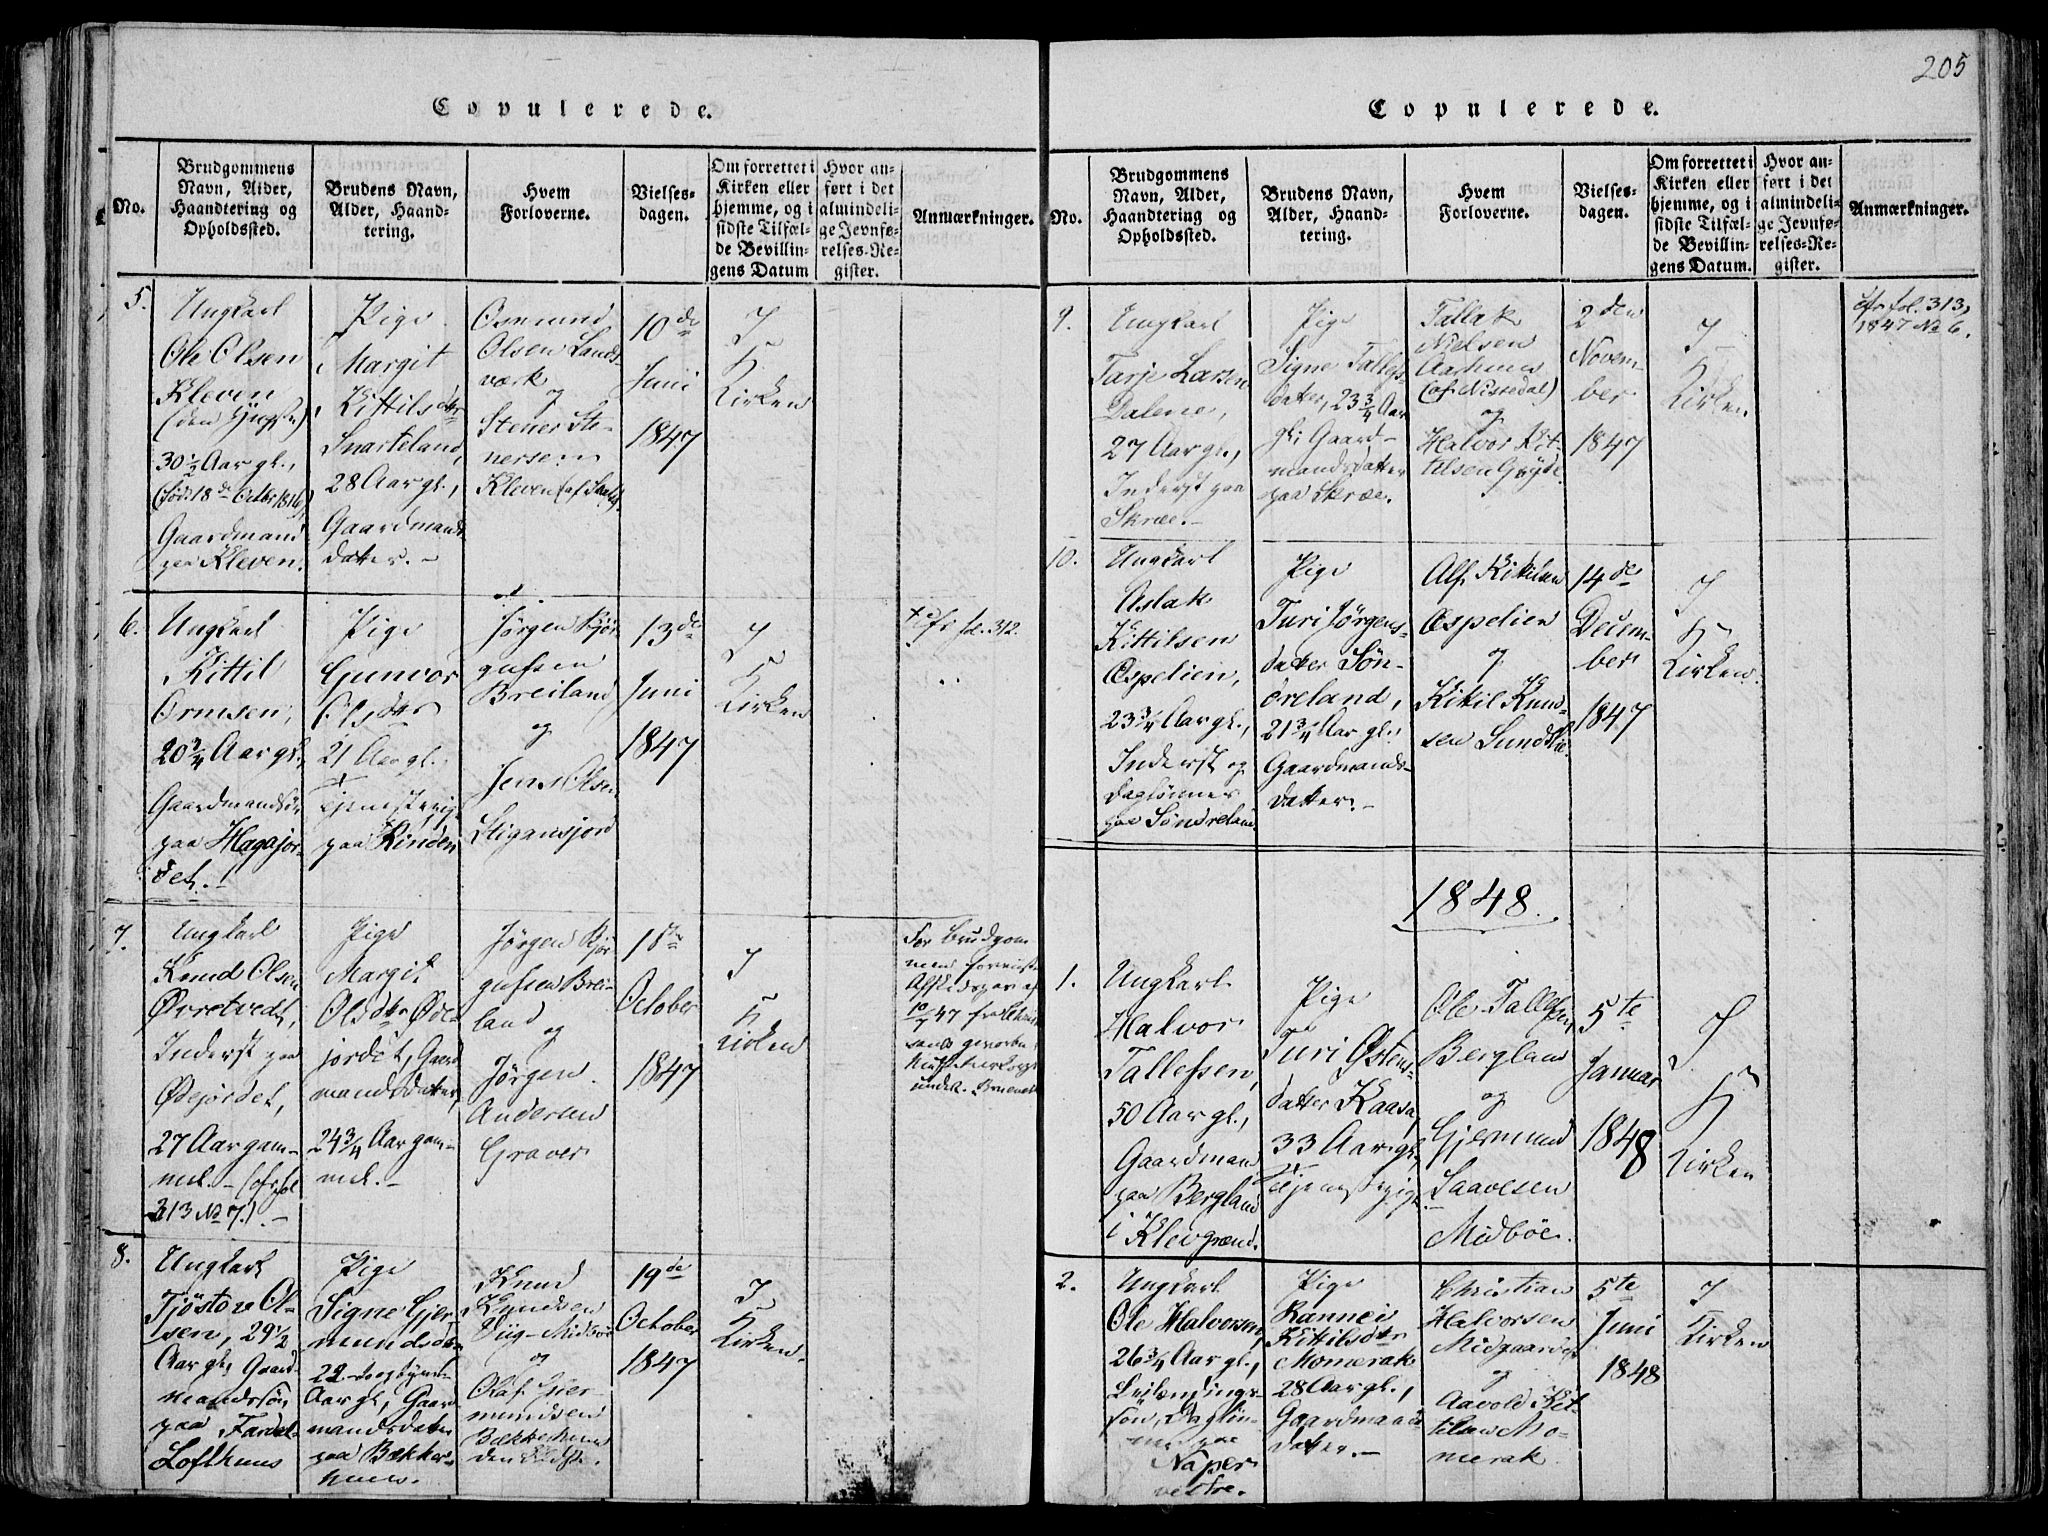 205
Copulerede.
No.
Brudgommens
Navn, Alder,
Haandtering og
Opholdssted.
Brudens Navn,
Alder, Haand-
tering.
Hvem
Forloverne.
Vielses-
dagen.
Om forrettet i
Kirken eller
hjemme, og i
sidste Tilfæl-
de Bevillin-
gens Datum
Hvor an-
ført i det
almindeli-
ge Jevnfø-
relses-Re-
gister.
Anmærkninger.
5.
Ungkarl
Ole Olsen
Kleven
(den Yngste)
30 1/2 Aar gl.,
(født 18de Octbr 1816),
Gaardmand
paa Kleven.
Pige
Margit
Kittilsdtr
Snarteland,
28 Aar gl.,
Gaardmands
datter.-
Osmund
Olsen Lands-
værk
og
Stener Ste-
nersen
Kleven
10de
Juni
1847
I
Kirken
6.
Ungkarl
Kittil
Ormsen,
20 3/4 Aar gl.,
Gaardmandsøn
paa Hagajor-
det.-
Pige
Gunvor
Olsdtr
21 Aar gl.
Tjenestepige
paa Rinden
Jørgen Bjør
gufsen
Breiland
og
Jens Olsen
Stigansjord
13de
Juni
1847
I
Kirken
cfr fol. 312.
7.
Ungkarl
Knud Olsen
Øvretvedt,
Inderst paa
Ødejordet,
27 Aar gam-
mel.- (cfr fol
313 No 7.).-
Pige
Margit
Olsdtr Øde-
jordet, Gaard
mandsdatter,
24 3/4 Aar gam-
mel.-
Jørgen Bjør
gufsen Brei-
land
og
Jørgen
Andersen
Graver
18de
October
1847
I
Kirken
For Brudgom
men
47
8.
Ungkarl
Tjøstov Ol-
sen, 29 1/2
Aar gl., Gaard-
mandssøn
paa Fardal
Lofthuus
Pige
Signe Gjer
mundsdtr
22
Aar gl., Gaard
mandsdatter
paa Bækker-
huus.
Knud
Knudsen
Viig-Midbøe
og
Olaf Gjer-
mundsen
Bækkerhuus
den Eldste.
19de
October
1847
I
Kirken.
Copulerede.
No.
Brudgommens
Navn, Alder,
Haandtering og
Opholdssted.
Brudens Navn,
Alder, Haand-
tering.
Hvem
Forloverne.
Vielses-
dagen.
Om forrettet i
Kirken eller
hjemme, og i
sidste Tilfæl-
de Bevillin-
gens Datum.
Hvor an-
ført i det
almindeli-
ge Jevnfø-
relses-Re-
gister.
Anmærkninger.
9.
Ungkarl
Tarje Larsen
Dalene,
27 Aar gl.,
Inderst paa
Skræe.-
Pige
Signe Tallefs-
datter, 23 3/4 Aar
gl., Gaard-
mandsdatter
paa Skræe.
Tallak
Nielsen
Aashuus
(af Nissedal)
og
Halvor Kit-
tilsen Grÿde.
2den
Novem-
ber
1847
I
Kirken
cfr fol. 313,
1847 No 6.
10.
Ungkarl
Aslak
Kittilsen
Æspelien,
23 3/4 Aar gl.,
Inderst og
Daglønner
paa Søndreland
Pige
Turi Jörgens-
datter Sön-
dreland,
21 3/4 Aar gl.,
Gaardmands-
datter.-
Alf Kittilsen
Æspelien
og
Kittil Knud-
sen Sundslie
14de
Decem-
ber
1847
I
Kirken.
1848.
1.
Ungkarl
Halvor
Tallefsen,
50 Aar gl.,
Gaardmand
paa Bergland
i Klevgrænd.
Pige
Turi Østens-
datter Kaasa,
33 Aar gl.,
Tjenestepige
Ole Tallefsen
Bergland
og
Gjermund
Saavesen
Midböe.
5te
Januar
1848
I
Kirken
2.
Ungkarl
Ole Halvorsen,
26 3/4 Aar gl.,
Leilendings-
søn, Dagløn-
ner paa
Naper
vestre.
Pige
Rannei
Kittilsdtr
Momerak
28 Aar gl.,
Gaardmands
datter.-
Christian
Halvorsen
Midgaarden
og
Aavold Kit
tilsen Mo-
merak.
5te
Juni
1848
I
Kirken